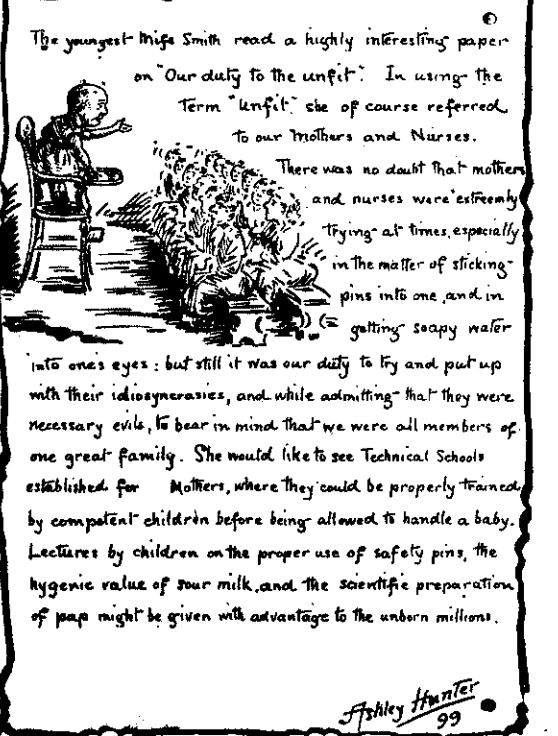 The youngest Miss Smith read a highly interesting paper
on "Our duty to the unfit". In using the
Term "Unfit" she of course referred
to our Mothers and Nurses.
There was no doubt that mothers
and nurses were extreemly
trying at times, especially
in the matter of sticking
pins into one, and in
getting soapy water
into one's eyes: but still it was our duty to try and put up
with their idiosyncrasies, and while admitting that they were
necessary evils, to bear in mind that we were all members of
one great family. She would like to see Technical Schools
established for Mothers, where they could be properly trained
by competent children before being allowed to handle a baby.
Lectures by children on the proper use of safety pins, the
hygenic value of sour milk, and the scientific preparation
of pap might be given with advantage to the unborn millions.
Ashley Hunter
99